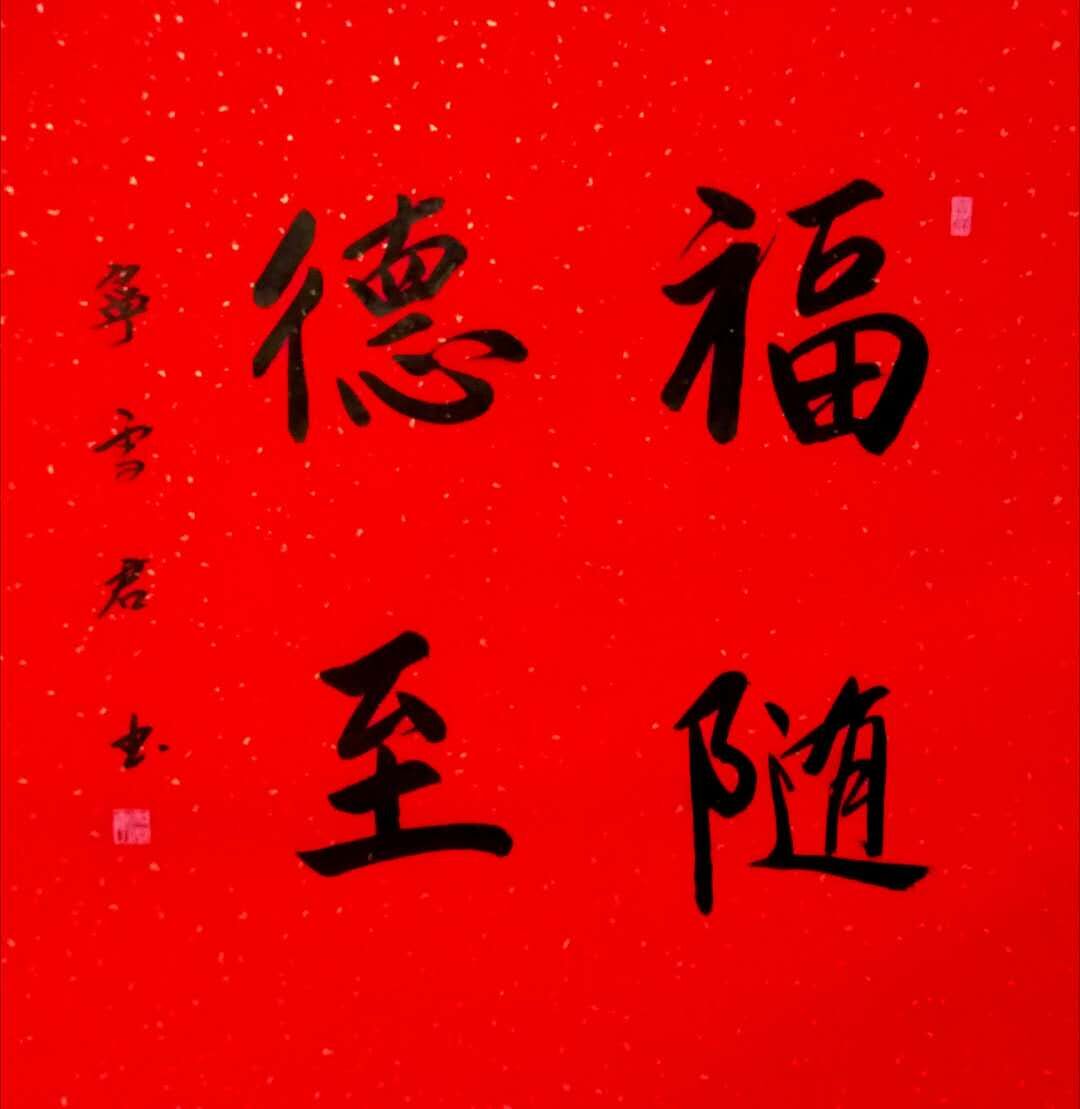 福随
德至
雪君书